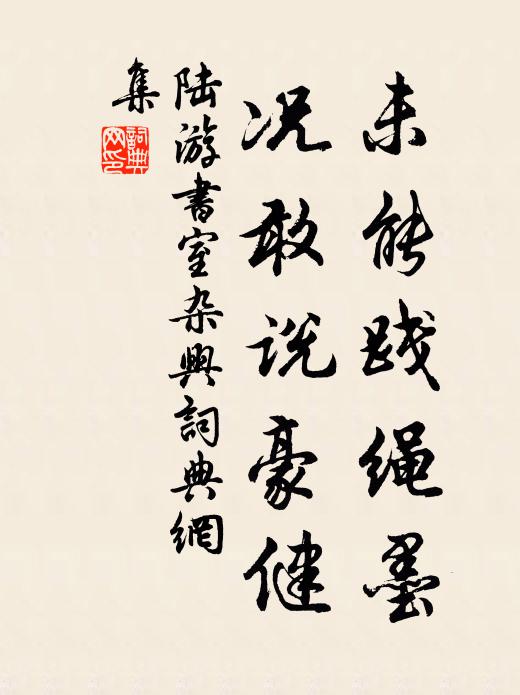 未能践绳墨
况敢说豪健
陆游书室杂兴词典網
集
詞典
网印